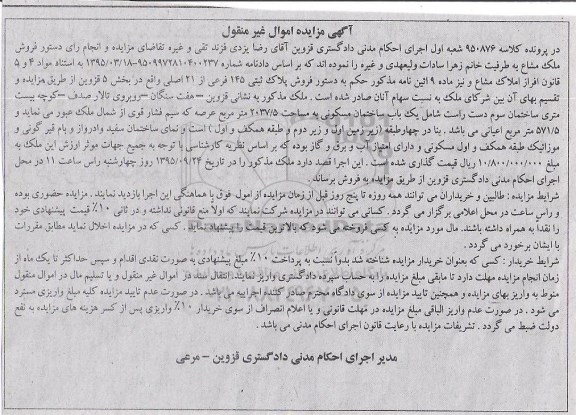 آگهی مزایده اموال غیر منقول
در پرونده کلاسه ۹۵۰۸۷۶ شعبه اول اجرای احکام مدنی دادگستری قزوین آقای رضا یزدی فرزند تقی و غیره تقاضای مزایده و انجام رای دستور فروش
ملک مشاع به طرفیت خانم زهرا سادات ولیعهدی و غیره را نموده اند که بر اساس دادنامه شماره ۹۵۰۹۹۷۲۸۱۰۴۰۰۲۳۷-۱۳۹۵/۰۳/۱۸ به استناد مواد ۴ و ۵
قانون افراز املاک مشاع و نیز ماده ۹ آئین نامه مذکور حکم به دستور فروش پلاک ثبتی ۱۴۵ فرعی از ۲۱ اصلی واقع در بخش ۵ قزوین از طریق مزایده و
تقسیم بهای آن بین شرکای ملک به نسبت سهام آنان صادر شده است . ملک مذکور به نشانی قزوین – هفت سنگان –روبروی تالار صدف –کوچه بیست
متری ساختمان سوم دست راست شامل یک باب ساختمان مسکونی به مساحت ۲۰۳۷/۵ متر مربع عرصه که سیم فشار قوی از شمال ملک عبور می نماید و
۵۷۱/۵ متر مربع اعیانی می باشد . بنا در چهارطبقه (زیر زمین اول و زیر دوم و طبقه همکف و اول ) است و نمای ساختمان سفید وادرواز و بام قیر گونی و
موزائیک طبقه همکف و اول مسکونی و دارای امتیاز آب و برق و گاز بوده که بر اساس نظریه کارشناسی با توجه به جمیع جهات موثر اورزش این ملک به
مبلغ ۱۰/۸۰۰/۰۰۰/۰۰۰ ریال قیمت گذاری شده است . این اجرا قصد دارد ملک مذکور را در تاریخ ۱۳۹۵/۰۹/۲۴ روز چهارشنبه راس ساعت ۱۱ در محل
اجرای احکام مدنی دادگستری قزوین از طریق مزایده به فروش برساند .
شرایط مزایده : طالبین و خریداران می توانند همه روزه تا پنج روز قبل از زمان مزایده از اموال فوق با هماهنگی این اجرا بازدید نمایند . مزایده حضوری بوده
و راس ساعت در محل اعلامی برگزار می گردد . کسانی می توانند در مزایده شرکت نمایند که اولا منع قانونی نداشته و در ثانی ۱۰٪ قیمت پیشنهادی خود
را نقدا به همراه داشته باشند. مال مورد مزایده به کسی فروخته می شود که بالاترین قیمت را پیشنهاد نماید . کسی که در مزایده اخلال نماید مطابق مقررات
با ایشان برخورد می گردد .
شرایط خریدار : کسی که بعنوان خریدار مزایده شناخته شد بدوا نسبت به پرداخت ۱۰٪ مبلغ پیشنهادی به صورت نقدی اقدام و سپس حداکثر تا یک ماه از
زمان انجام مزایده مهلت دارد تا مابقی مبلغ مزایده را به حساب سپرده دادگستری واریز نمایند. انتقال سند در اموال غیر منقول و یا تسلیم مال در اموال منقول
منوط به واریز بهای مزایده و همچنین تایید مزایده از سوی دادگاه محترم صادر کننده اجراییه می باشد . در صورت عدم تایید مزایده کلیه مبلغ واریزی مسترد
می شود . در صورت عدم واریز الباقی مبلغ مزایده در مهلت قانونی و یا اعلام انصراف از سوی خریدار ۱۰٪ واریزی پس از کسر هزینه های مزایده به نفع
دولت ضبط می گردد . تشریفات مزایده با رعایت قانون اجرای احکام مدنی می باشد .
مدیر اجرای احکام مدنی دادگستری قزوین – مرعی